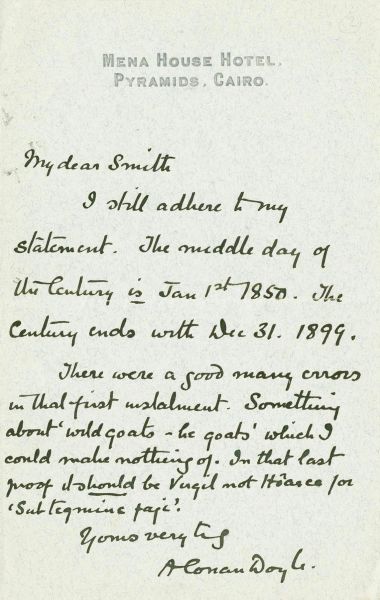 MENA HOUSE HOTEL,
PYRAMIDS, CAIRO.
My dear Smith
I still adhere to my
statement. The middle day of
the Century is Jan 1st 1850. The
Century ends with Dec 31. 1899.
There were a good many errors
in that first instalment. Something
about 'wild goats - he goats' which I
could make nothing of. In that last
proof it should be Virgil not Horace for
'Sub tegmine fagi'.
Yours very try
A Conan Doyle.